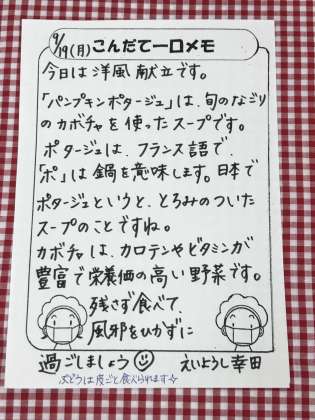 9/19(月) こんだて一口メモ
今日は洋風献立です。
「パンプキンポタージュ」は、旬のなごり
のカボチャを使ったスープです。
ポタージュは、フランス語で、
「ポ」は鍋を意味します。日本で
ポタージュというと、とろみのついた
スープのことですね。
カボチャは、カロテンやビタミンが
豊富で栄養価の高い野菜です。
残さず食べて
風邪をひかずに
過ごしましょう☺ えいようし 幸田
ぶどうは皮ごと食べられます☆